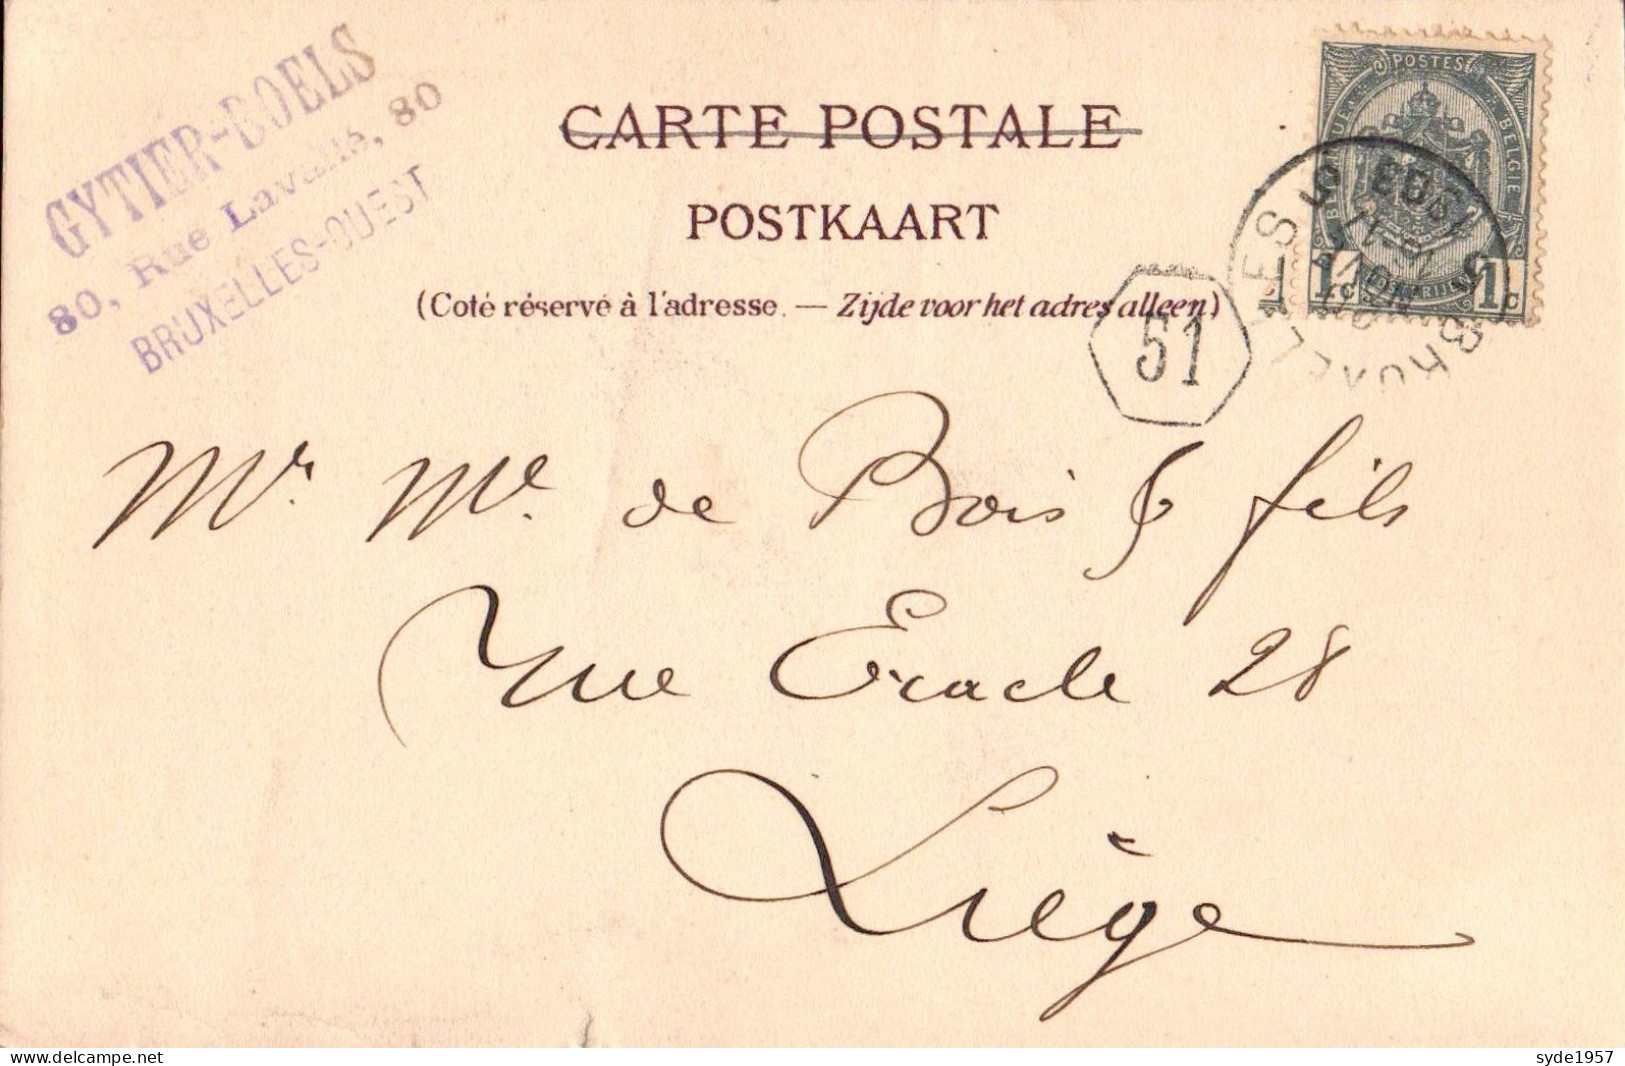 GYTIER-BOELS
80, Rue Lavallée, 80
BRUXELLES-OUEST
CARTE POSTALE
POSTKAART
(Coté réservé à l'adresse. — Zijde voor het adres alleen)
POSTES
BELGIQUE BELGIE
1c 1c
BRUXELLES 5
1903
51
Mr. Me. de Bois & fils
Rue Eracle 28
Liége
delcampe.net
syde1957